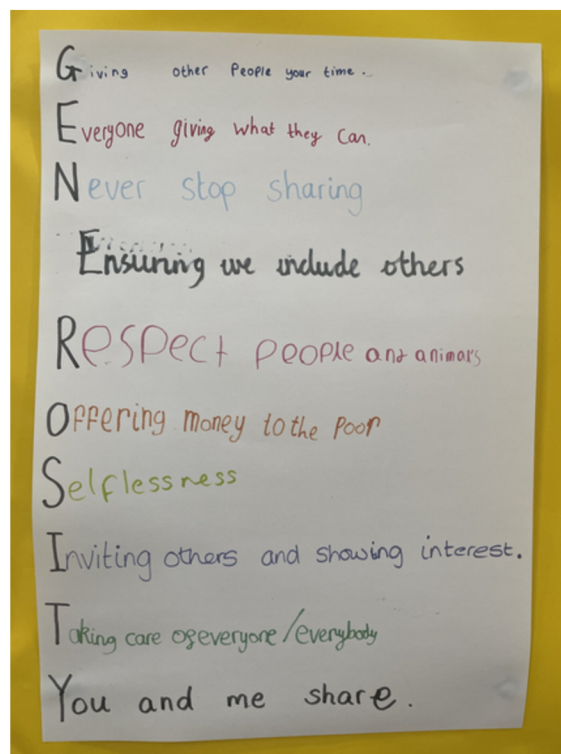 Giving other People your time..
Everyone giving what they can.
Never stop sharing
Ensuring we include others
Respect people and animals
Offering money to the poor
Selflessness
Inviting others and showing interest.
Taking care of everyone/everybody
You and me share.